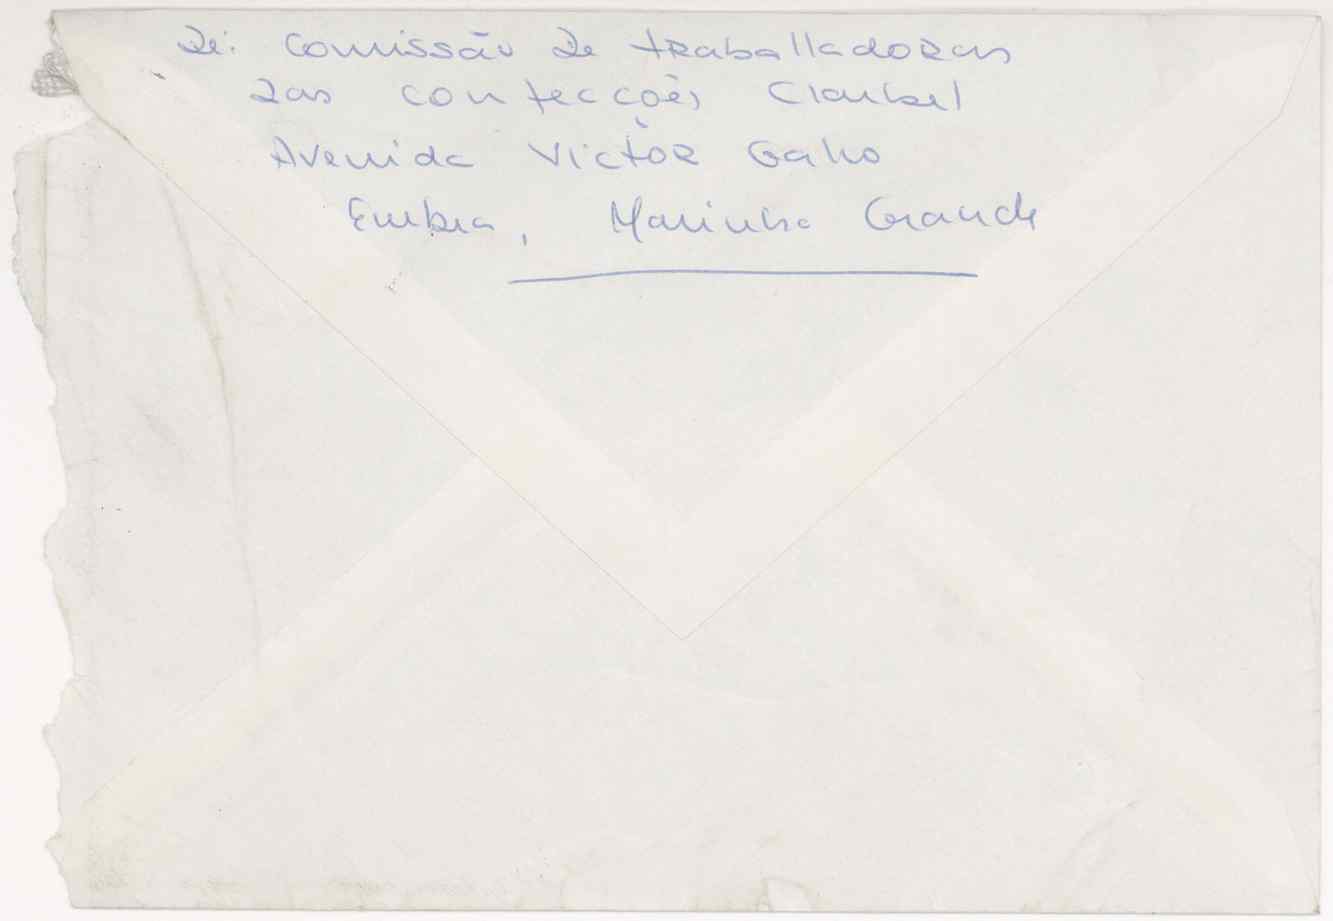 De: Comissão de traballadoras
das confecções Claribel
Avenida Victor Galo
Embra, Marinha Grande